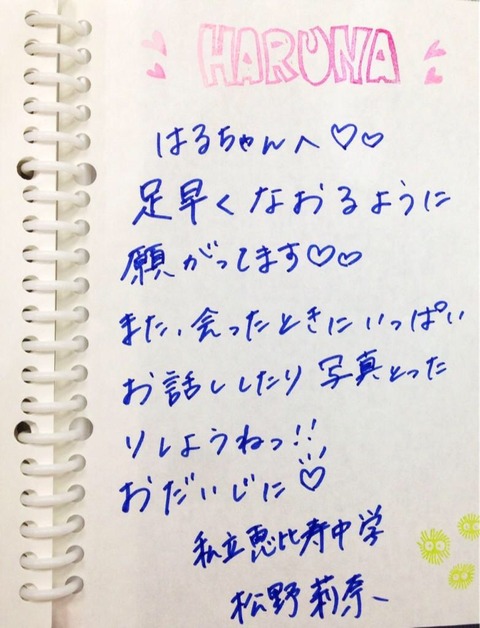 HARUNA
はるちゃんへ♡♡
足早くなおるように
願がってます♡♡
また、会ったときにいっぱい
お話ししたり写真とった
りしようねっ!!
おだいじに♡
私立恵比寿中学
松野莉奈